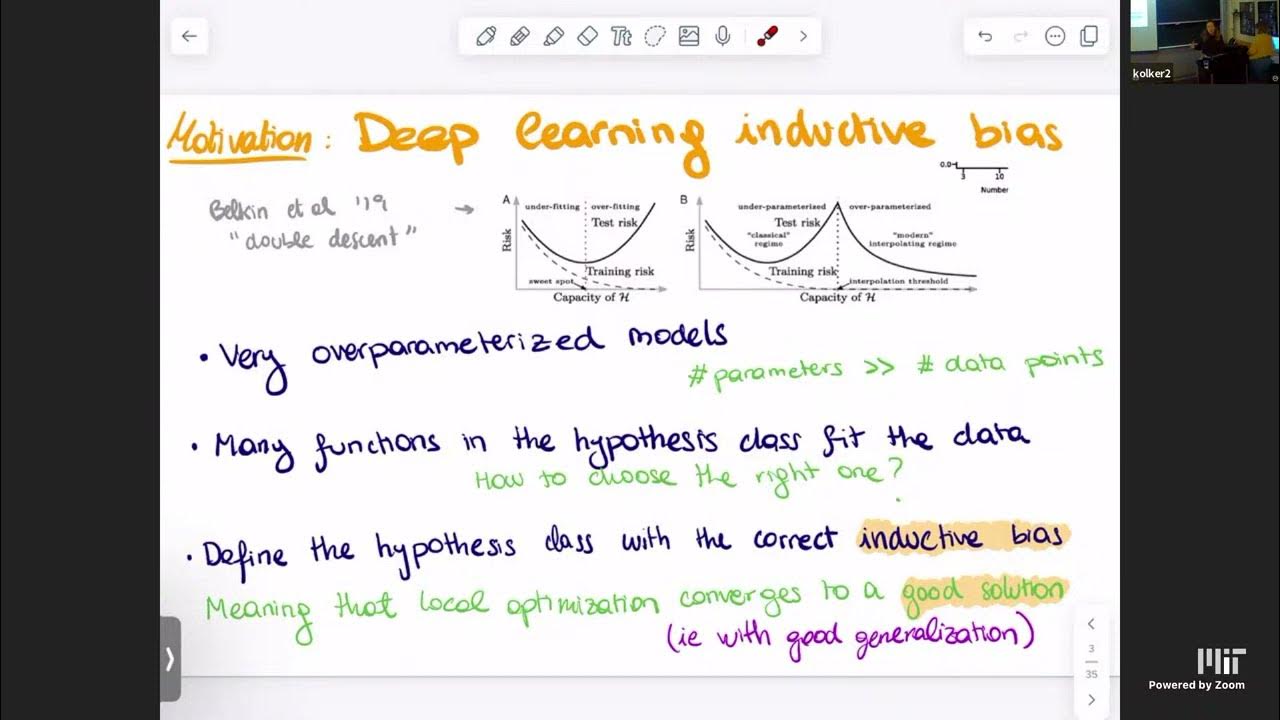 kolker2
Motivation: Deep learning inductive bias
0.0
3 10
Number
Belkin et al '19
"double descent"
A
under-fitting over-fitting
Test risk
Risk
Training risk
sweet spot
Capacity of H
B
under-parameterized over-parameterized
Test risk
"classical" regime
"modern" interpolating regime
Risk
Training risk
interpolation threshold
Capacity of H
• Very overparameterized models
# parameters >> # data points
• Many functions in the hypothesis class fit the data
How to choose the right one?
• Define the hypothesis class with the correct inductive bias
Meaning that local optimization converges to a good solution
(ie with good generalization)
3
35
MIT
Powered by Zoom
Tt